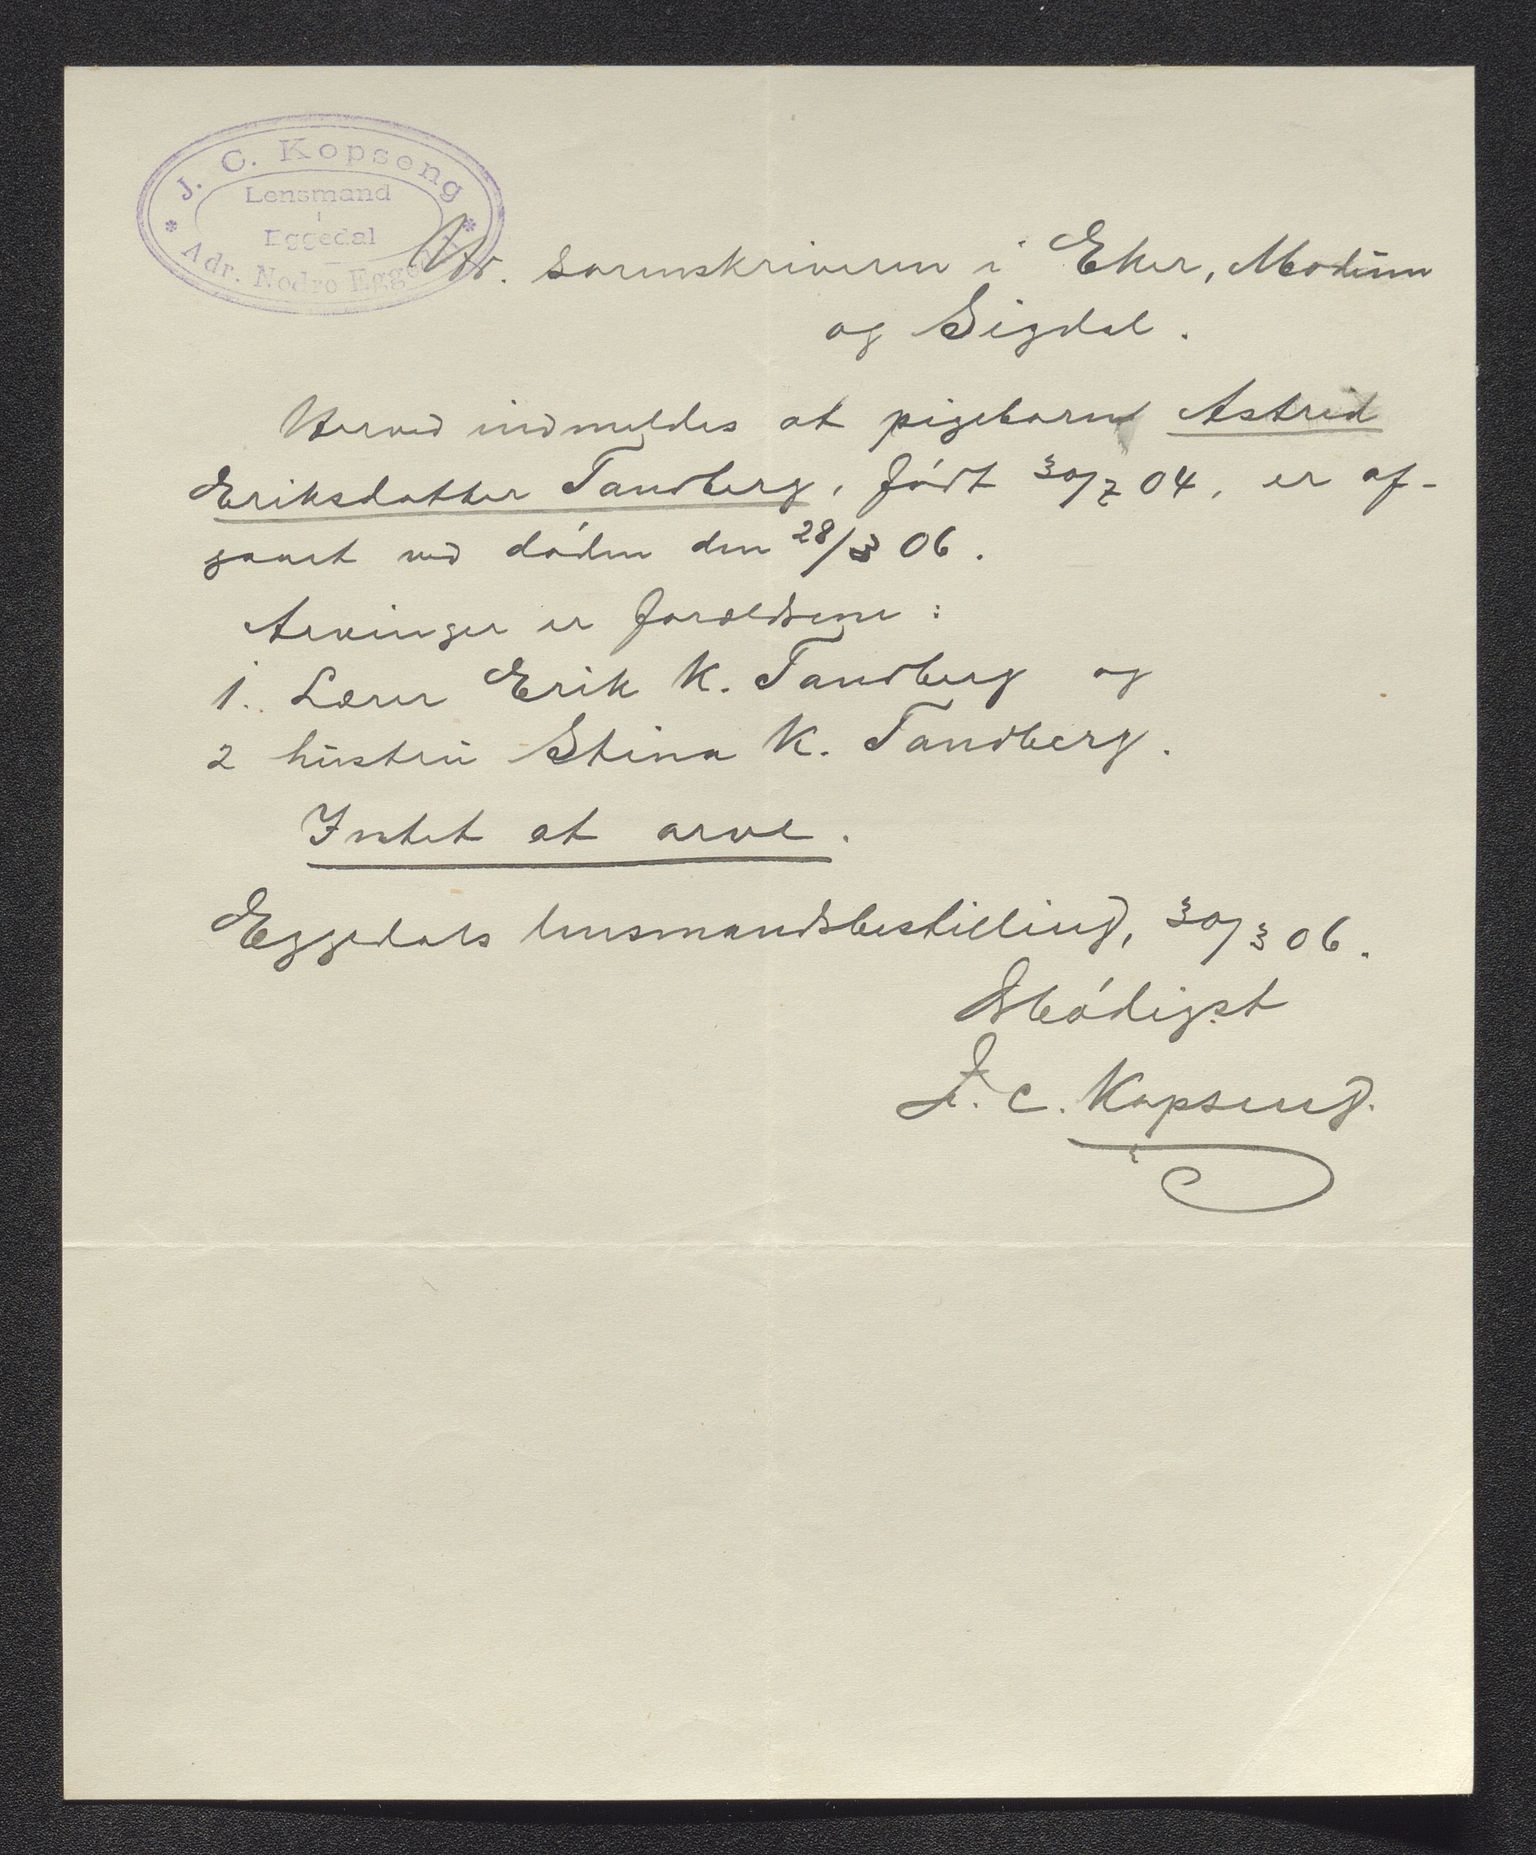 J. C. Kopseng
Lensmand
i
Eggedal
Adr. Nedre Eggedal
Hr. sorenskriveren i Eker, Modum
og Sigdal.
Herved indmeldes at pigebarnet Astrid
Eriksdatter Tandberg, født 30/7 04, er af-
gaaet ved døden den 28/3 06.
Arvinger er forældrene:
1. Lærer Erik K. Tandberg og
2 hustru Stina K. Tandberg.
Intet at arve.
Eggedals lensmandsbestilling, 30/3 06.
Ærbødigst
J. C. Kopseng.